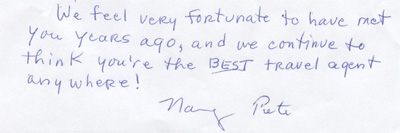 We feel very fortunate to have met
you years ago, and we continue to
think you're the BEST travel agent
anywhere!
Nancy Pete